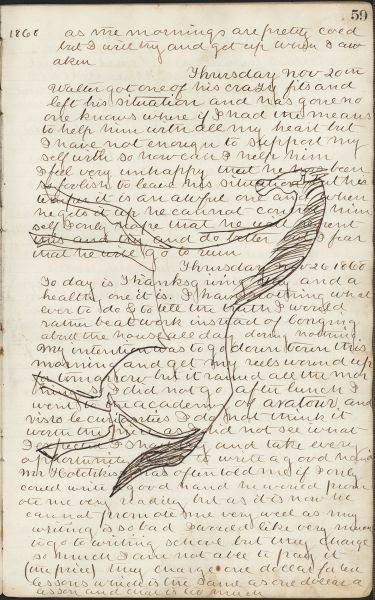 59
1868 as the mornings are pretty cold
but I will try and get up when I aw
aken
Thursday Nov 20th
Walter got one of his crazy fits and
left his situation and has gone no
one knows where if I had the means
to help him with all my heart but
I have not enough to support my
self with so how can I help him
I feel very unhappy that he has been
so foolish to leave his situation but this
it is an awful one and when
he gets it up he cannot him
self I only hope that he will repent
this and try and do better I fear
that he will go to ruin
Thursday Nov 26 1868
To day is Thanksgiving day and a
healthy one it is. I have nothing what
ever to do & to tell the truth I would
rather be at work instead of lounging
about the house all day doing nothing
My intention was to go down town this
morning and get my reels wound up
for tomorrow but it rained all the mor
I did not go after lunch I
went to academy of
visit curiosities I do not think it
worth the as I did not see what
I expected I and take every
opportunity to write a good hand
Mr Hotchkiss has often told me if I only
could write a good hand he would prom
ote me very readily but as it is now he
cannot promote me very well as my
writing is so bad I would like very much
to go to writing school but they charge
so much I am not able to pay it
(the price) they charge one dollar for ten
lessons which is the same as one dollar a
lesson and that is too much